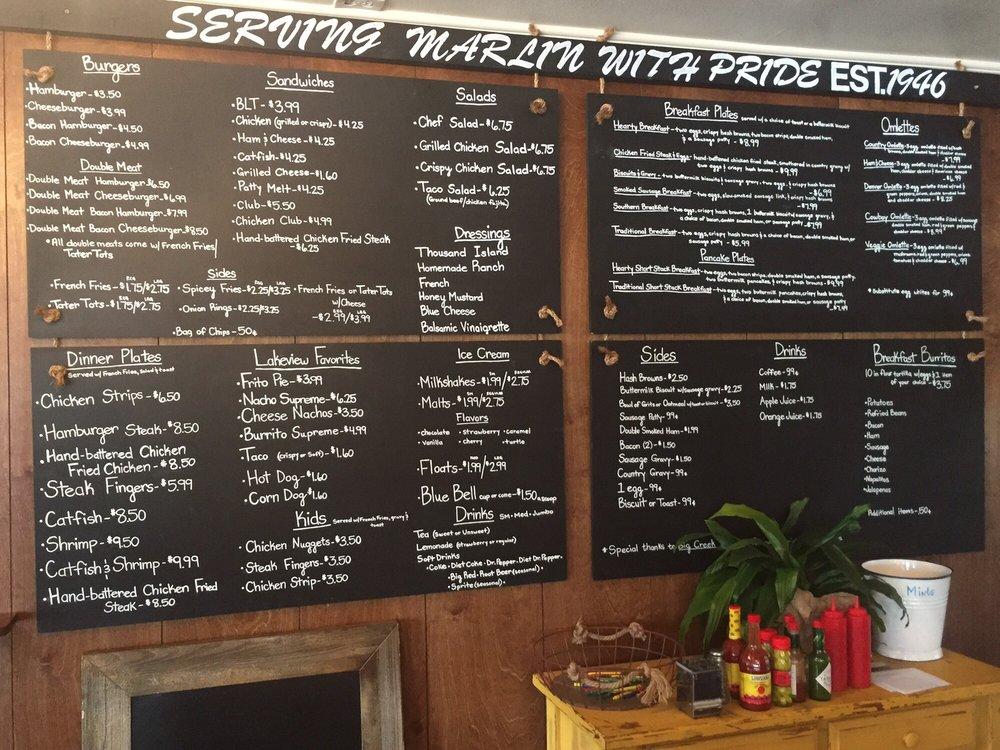 SERVING MARLIN WITH PRIDE EST. 1946
Burgers
•Hamburger-$3.50
Cheeseburger-$3.99
Bacon Hamburger-$4.50
Bacon Cheeseburger-$4.99
Double Meat
•Double Meat Hamburger-$6.50
•Double Meat Cheeseburger-$6.99
•Double Meat Bacon Hamburger-$7.99
•Double Meat Bacon Cheeseburger-$8.50
*All double meats come w/French Fries/
Tater Tots
Sandwiches
•BLT-$3.99
•Chicken (grilled or crispy)-$4.25
•Ham & Cheese-$4.25
•Catfish-$4.25
•Grilled Cheese-$1.60
•Patty Melt-$4.25
•Club-$5.50
•Chicken Club-$4.99
•Hand-battered Chicken Fried Steak
-$6.25
Salads
•Chef Salad-$6.75
•Grilled Chicken Salad-$6.75
•Crispy Chicken Salad-$6.75
•Taco Salad-$6.25
(Ground beef/chicken fajita)
Dressings
Thousand Island
Homemade Ranch
French
Honey Mustard
Blue Cheese
Balsamic Vinaigrette
Sides
•French Fries-$1.75/$2.75
•Tater Tots-$1.75/$2.75
•Spicey Fries-$2.25/$3.25
•Onion Rings-$2.25/$3.25
•Bag of Chips-50¢
•French Fries or Tater Tots
w/Cheese
-$2.99/$3.99
Breakfast Plates served w/a choice of toast or a buttermilk biscuit
Hearty Breakfast-two eggs, crispy hash browns, two bacon strips, double smoked ham,
& a sausage patty -$8.99
Chicken Fried Steak & Eggs-hand-battered chicken fried steak, smothered in country gravy w/
two eggs & crispy hash browns -$9.99
Biscuits & Gravy-two buttermilk biscuits & sausage gravy, two eggs, & crispy hash browns
-$6.99
Smoked Sausage Breakfast-two eggs, slow-smoked sausage link, & crispy hash browns
-$7.99
Southern Breakfast-two eggs, crispy hash browns, 1 buttermilk biscuit w/sausage gravy, &
a choice of bacon, double smoked ham, or sausage patty
Traditional Breakfast-two eggs, crispy hash browns & a choice of bacon, double smoked ham, or
sausage patty -$5.99
Pancake Plates
Hearty Short Stack Breakfast-two eggs, two bacon strips, double smoked ham, a sausage patty
two buttermilk pancakes, & crispy hash browns -$9.99
Traditional Short Stack Breakfast-two eggs, two buttermilk pancakes, crispy hash browns
& a choice of bacon, double smoked ham, or sausage patty
-$7.49
Omlettes
Country Omlette-3 egg omlette
Ham & Cheese-3 egg omlette
-$6.99
Denver Omlette-3 egg omlette
-$8.25
Cowboy Omlette-3 egg omlette
-$8.99
Veggie Omlette-3 egg omlette
*Substitute egg whites for 99¢
Dinner Plates
served w/French Fries, Salad & toast
•Chicken Strips-$6.50
•Hamburger Steak-$8.50
•Hand-battered Chicken
Fried Chicken-$8.50
•Steak Fingers-$5.99
•Catfish-$8.50
•Shrimp-$9.50
•Catfish & Shrimp-$9.99
•Hand-battered Chicken Fried
Steak-$8.50
Lakeview Favorites
•Frito Pie-$3.99
•Nacho Supreme-$6.25
•Cheese Nachos-$3.50
•Burrito Supreme-$4.99
•Taco (crispy or soft)-$1.60
•Hot Dog-$1.60
•Corn Dog $1.60
Kids served w/French Fries, gravy &
toast
•Chicken Nuggets-$3.50
•Steak Fingers-$3.50
•Chicken Strip-$3.50
Ice Cream
•Milkshakes-$1.99/$2.75
•Malts-$1.99/$2.75
Flavors
•chocolate •strawberry •caramel
•vanilla •cherry •turtle
•Floats-$1.99/$2.99
•Blue Bell cup or cone-$1.50 a scoop
Drinks SM•Med•Jumbo
Tea (Sweet or Unsweet)
Lemonade (strawberry or regular)
Soft Drinks
•Coke•Diet Coke•Dr. Pepper•Diet Dr. Pepper
•Big Red•Root Beer (seasonal)•
•Sprite (seasonal)•
Sides
Hash Browns-$2.50
Buttermilk Biscuit w/sausage gravy-$2.25
Bowl of Grits or Oatmeal w/-$3.50
Sausage Patty-99¢
Double Smoked Ham-$1.99
Bacon (2)-$1.50
Sausage Gravy-$1.50
Country Gravy-99¢
1 egg-99¢
Biscuit or Toast-99¢
*Special thanks to Big Creek
Drinks
Coffee-99¢
Milk-$1.75
Apple Juice-$1.75
Orange Juice-$1.75
Breakfast Burritos
10 in flour tortilla w/eggs & 1 item
of your choice-$3.75
•Potatoes
•Refried Beans
•Bacon
•Ham
•Sausage
•Cheese
•Chorizo
•Nopalitos
•Jalapenos
Additional Items-.50¢
Mints